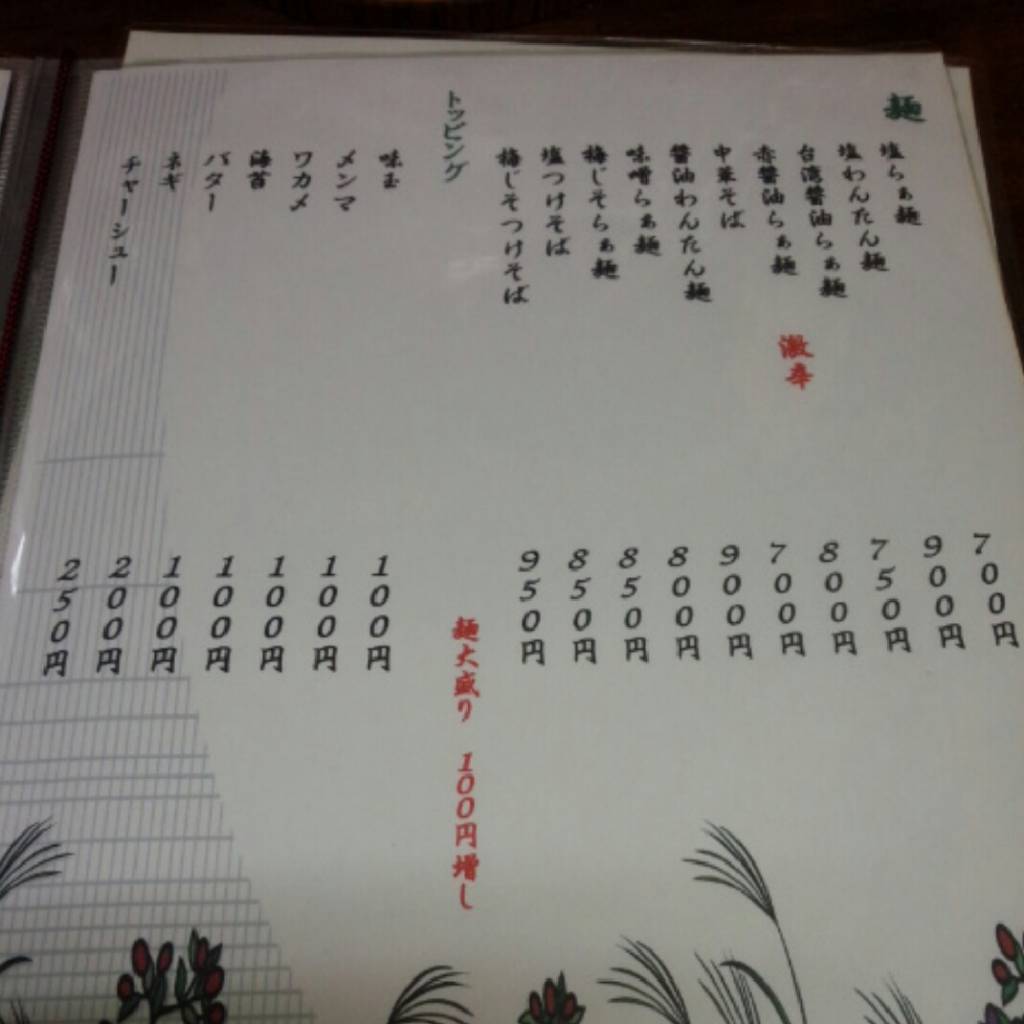 麺
塩らぁ麺 700円
塩わんたん麺 900円
台湾醤油らぁ麺 750円
赤醤油らぁ麺 激辛 800円
中華そば 700円
醤油わんたん麺 900円
味噌らぁ麺 800円
梅じそらぁ麺 850円
塩つけそば 850円
梅じそつけそば 950円
トッピング
麺大盛り 100円増し
味玉 100円
メンマ 100円
ワカメ 100円
海苔 100円
バター 100円
ネギ 200円
チャーシュー 250円